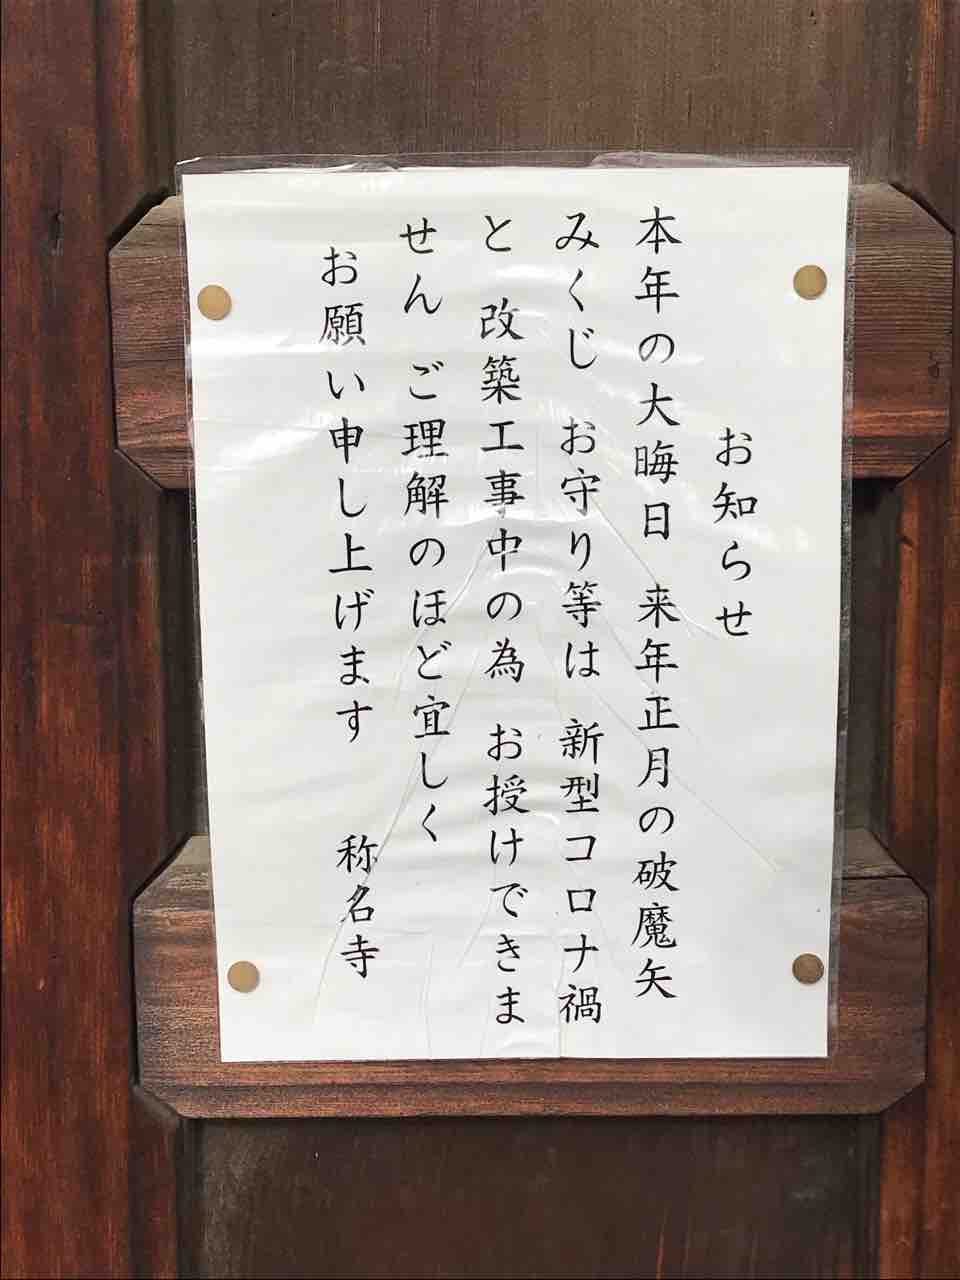 お知らせ
本年の大晦日　来年正月の破魔矢
みくじ　お守り等は　新型コロナ禍
と　改築工事中の為　お授けできま
せん　ご理解のほど宜しく
お願い申し上げます　　称名寺